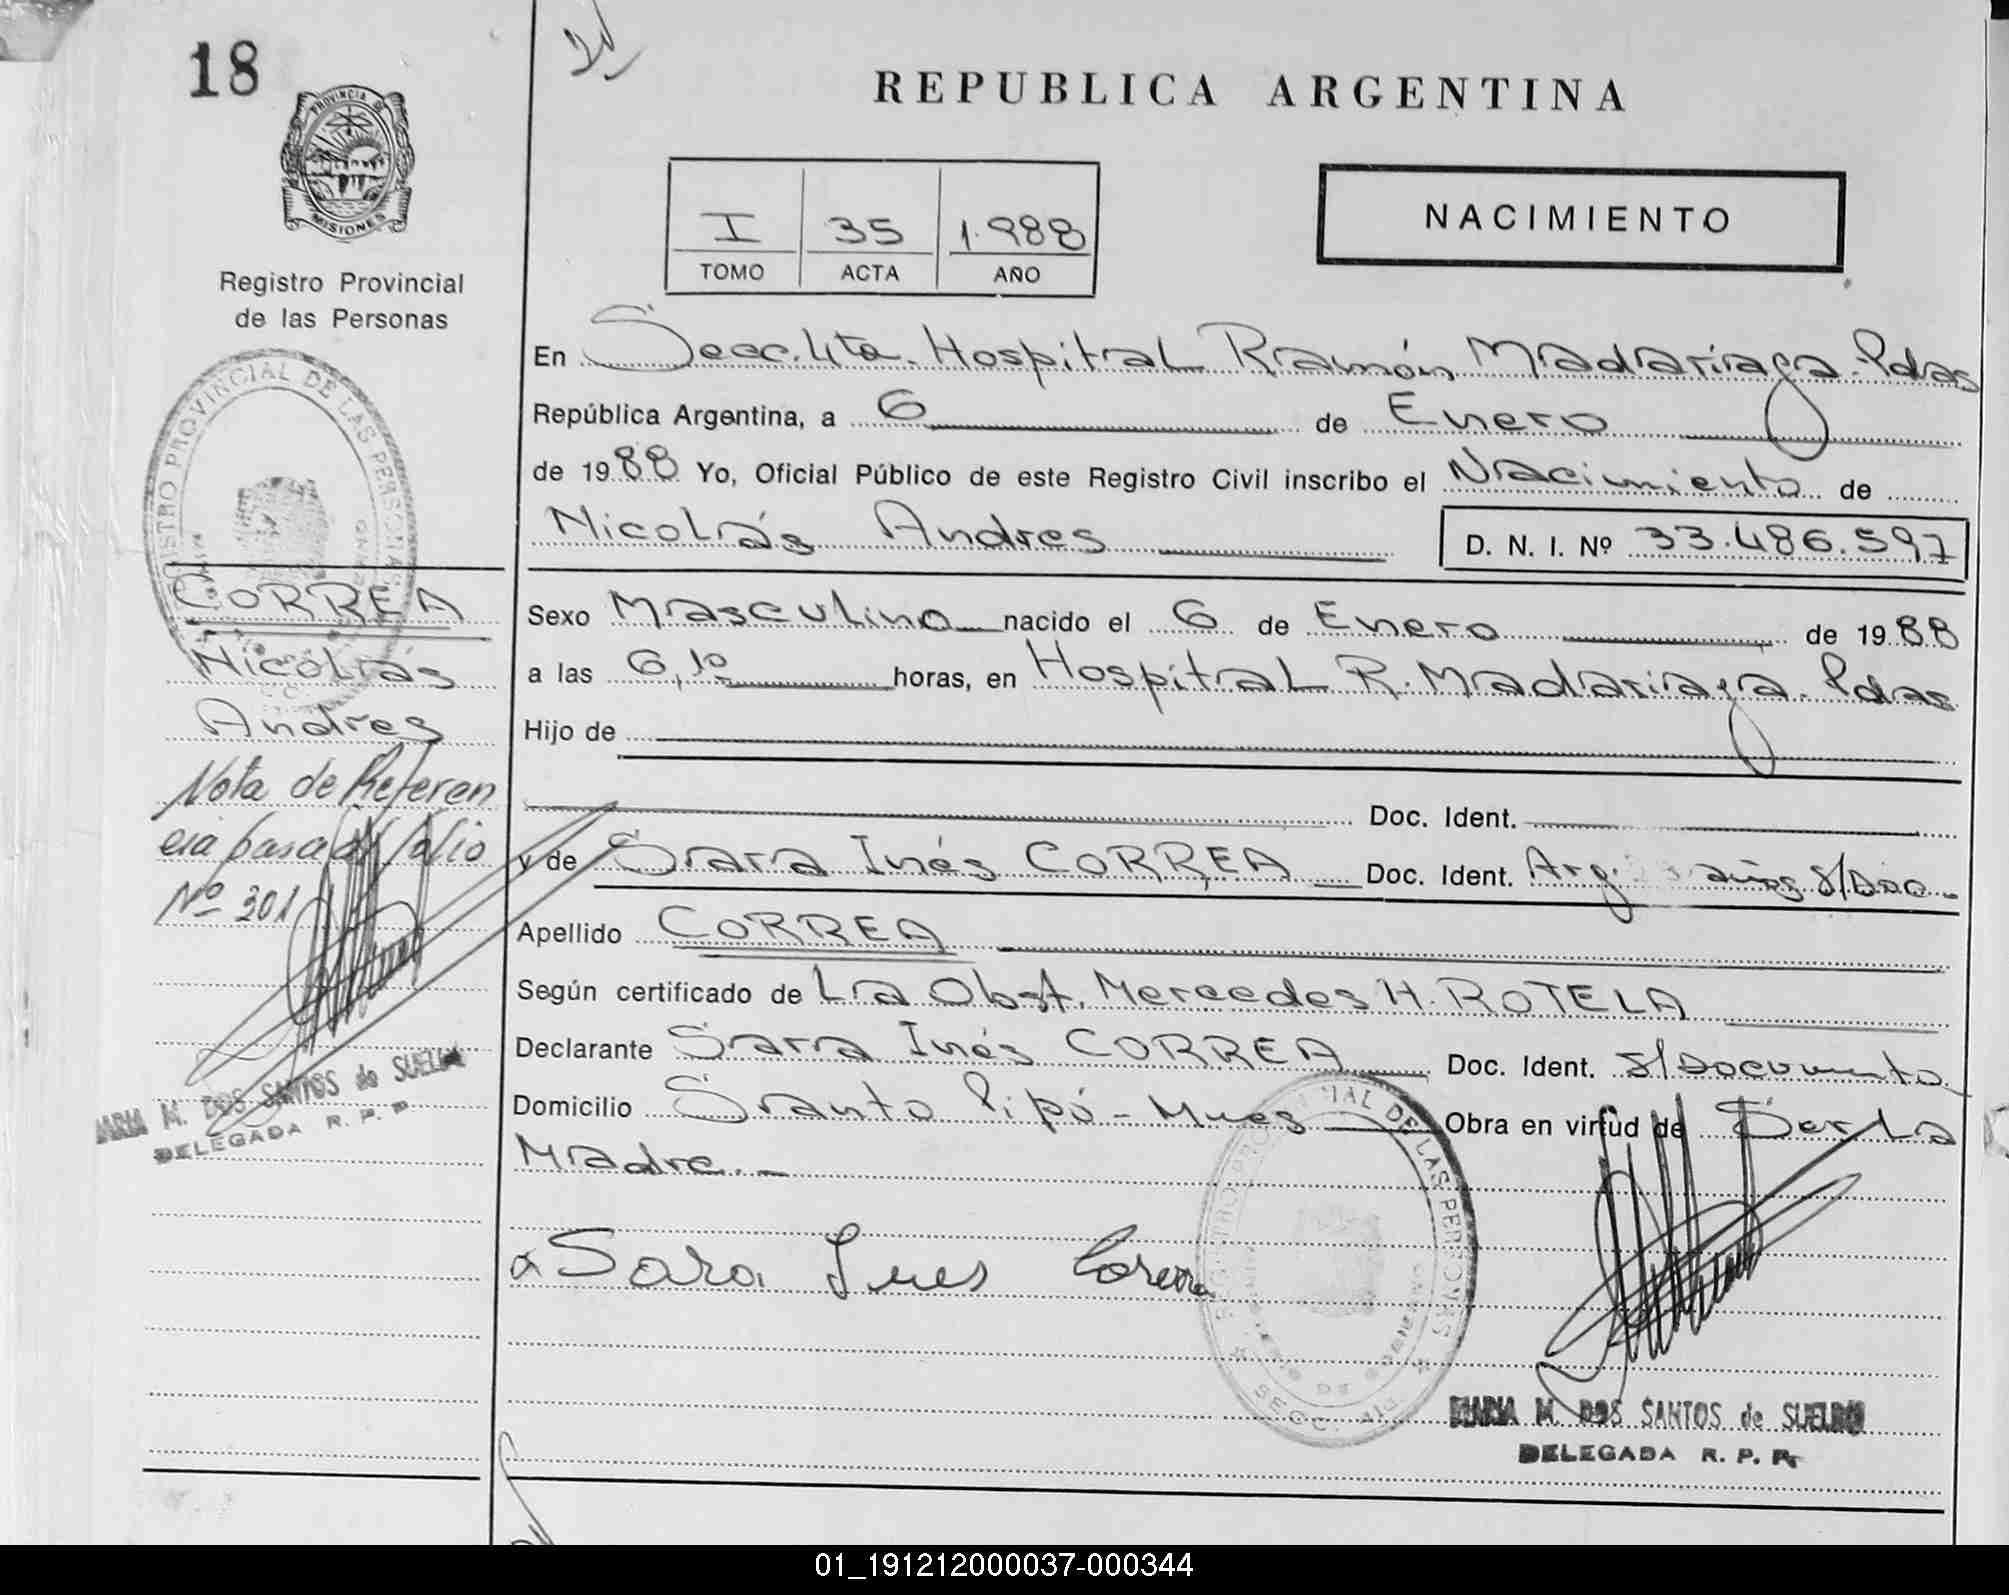 18
PROVINCIA DE
MISIONES
Registro Provincial
de las Personas
REPUBLICA ARGENTINA
I 35 1.988
TOMO ACTA AÑO
NACIMIENTO
En Secc. 4ta. Hospital Ramón Madariaga. Pdas
República Argentina, a 6 de Enero
de 1988 Yo, Oficial Público de este Registro Civil inscribo el Nacimiento de
Nicolás Andres D. N. I. Nº 33.486.597
CORREA
Nicolás
Andres
Nota de Referen
cia pasa al folio
Nº 301
MARIA M. DOS SANTOS de SUELDO
DELEGADA R. P. P.
Sexo Masculino nacido el 6 de Enero de 1988
a las 6,10 horas, en Hospital R. Madariaga. Pdas
Hijo de
Doc. Ident.
y de Sara Inés CORREA Doc. Ident. Arg. años s/Doc.
Apellido CORREA
Según certificado de La Obst. Mercedes H. ROTELA
Declarante Sara Inés CORREA Doc. Ident. s/Documento
Domicilio Santo Pipó - Mnes Obra en virtud de Ser la
Madre.
Sara Ines Correa
MARIA M. DOS SANTOS de SUELDO
DELEGADA R. P. P.
01_191212000037-000344